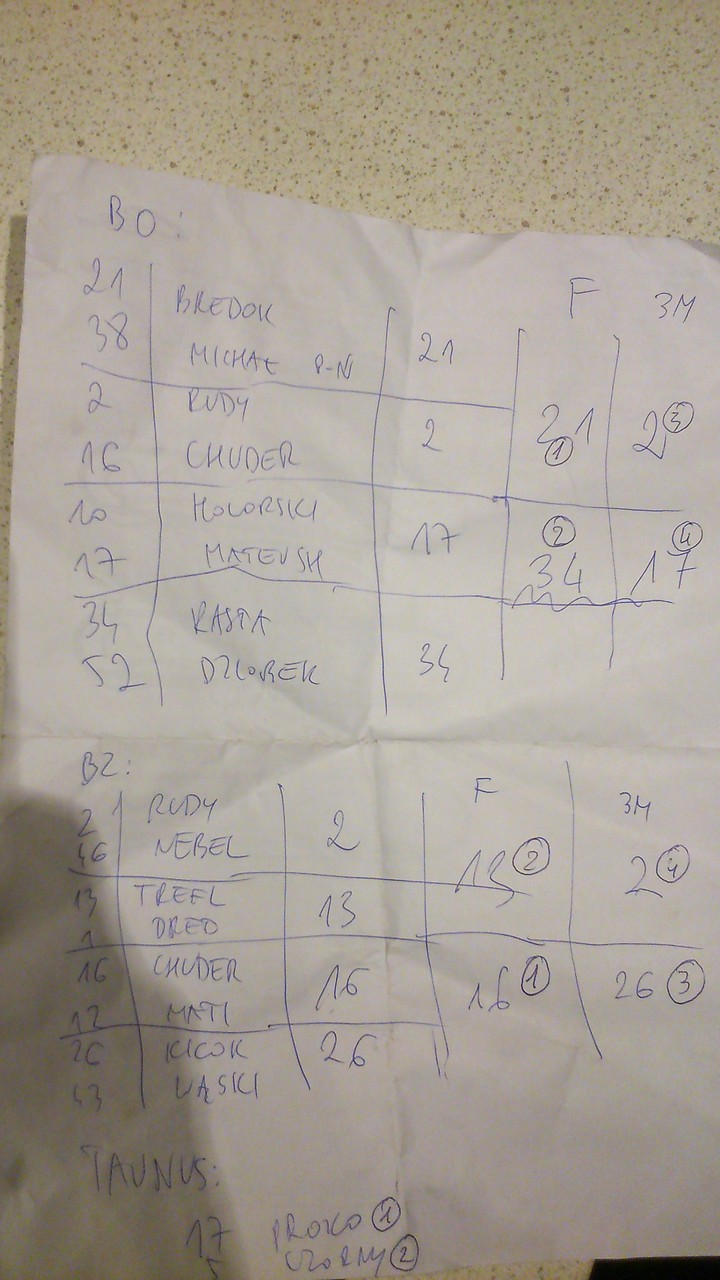 BO:
F 3M
21 BREDOK
38 MICHAŁ P-N 21
2 RUDY 2 21 ① 2 ③
16 CHUDER
10 HOLORSKI
17 MATEUSH 17 34 ② 17 ④
34 RASTA
52 DZIOBEK 34
BZ:
F 3M
2 RUDY
46 NEBEL 2 13 ② 2 ④
13 TREFL
1 DRED 13
16 CHUDER
12 MATI 16 16 ① 26 ③
26 KICOK 26
43 VĄSKI
TAUNUS:
17 PROKO ①
5 CZORNY ②